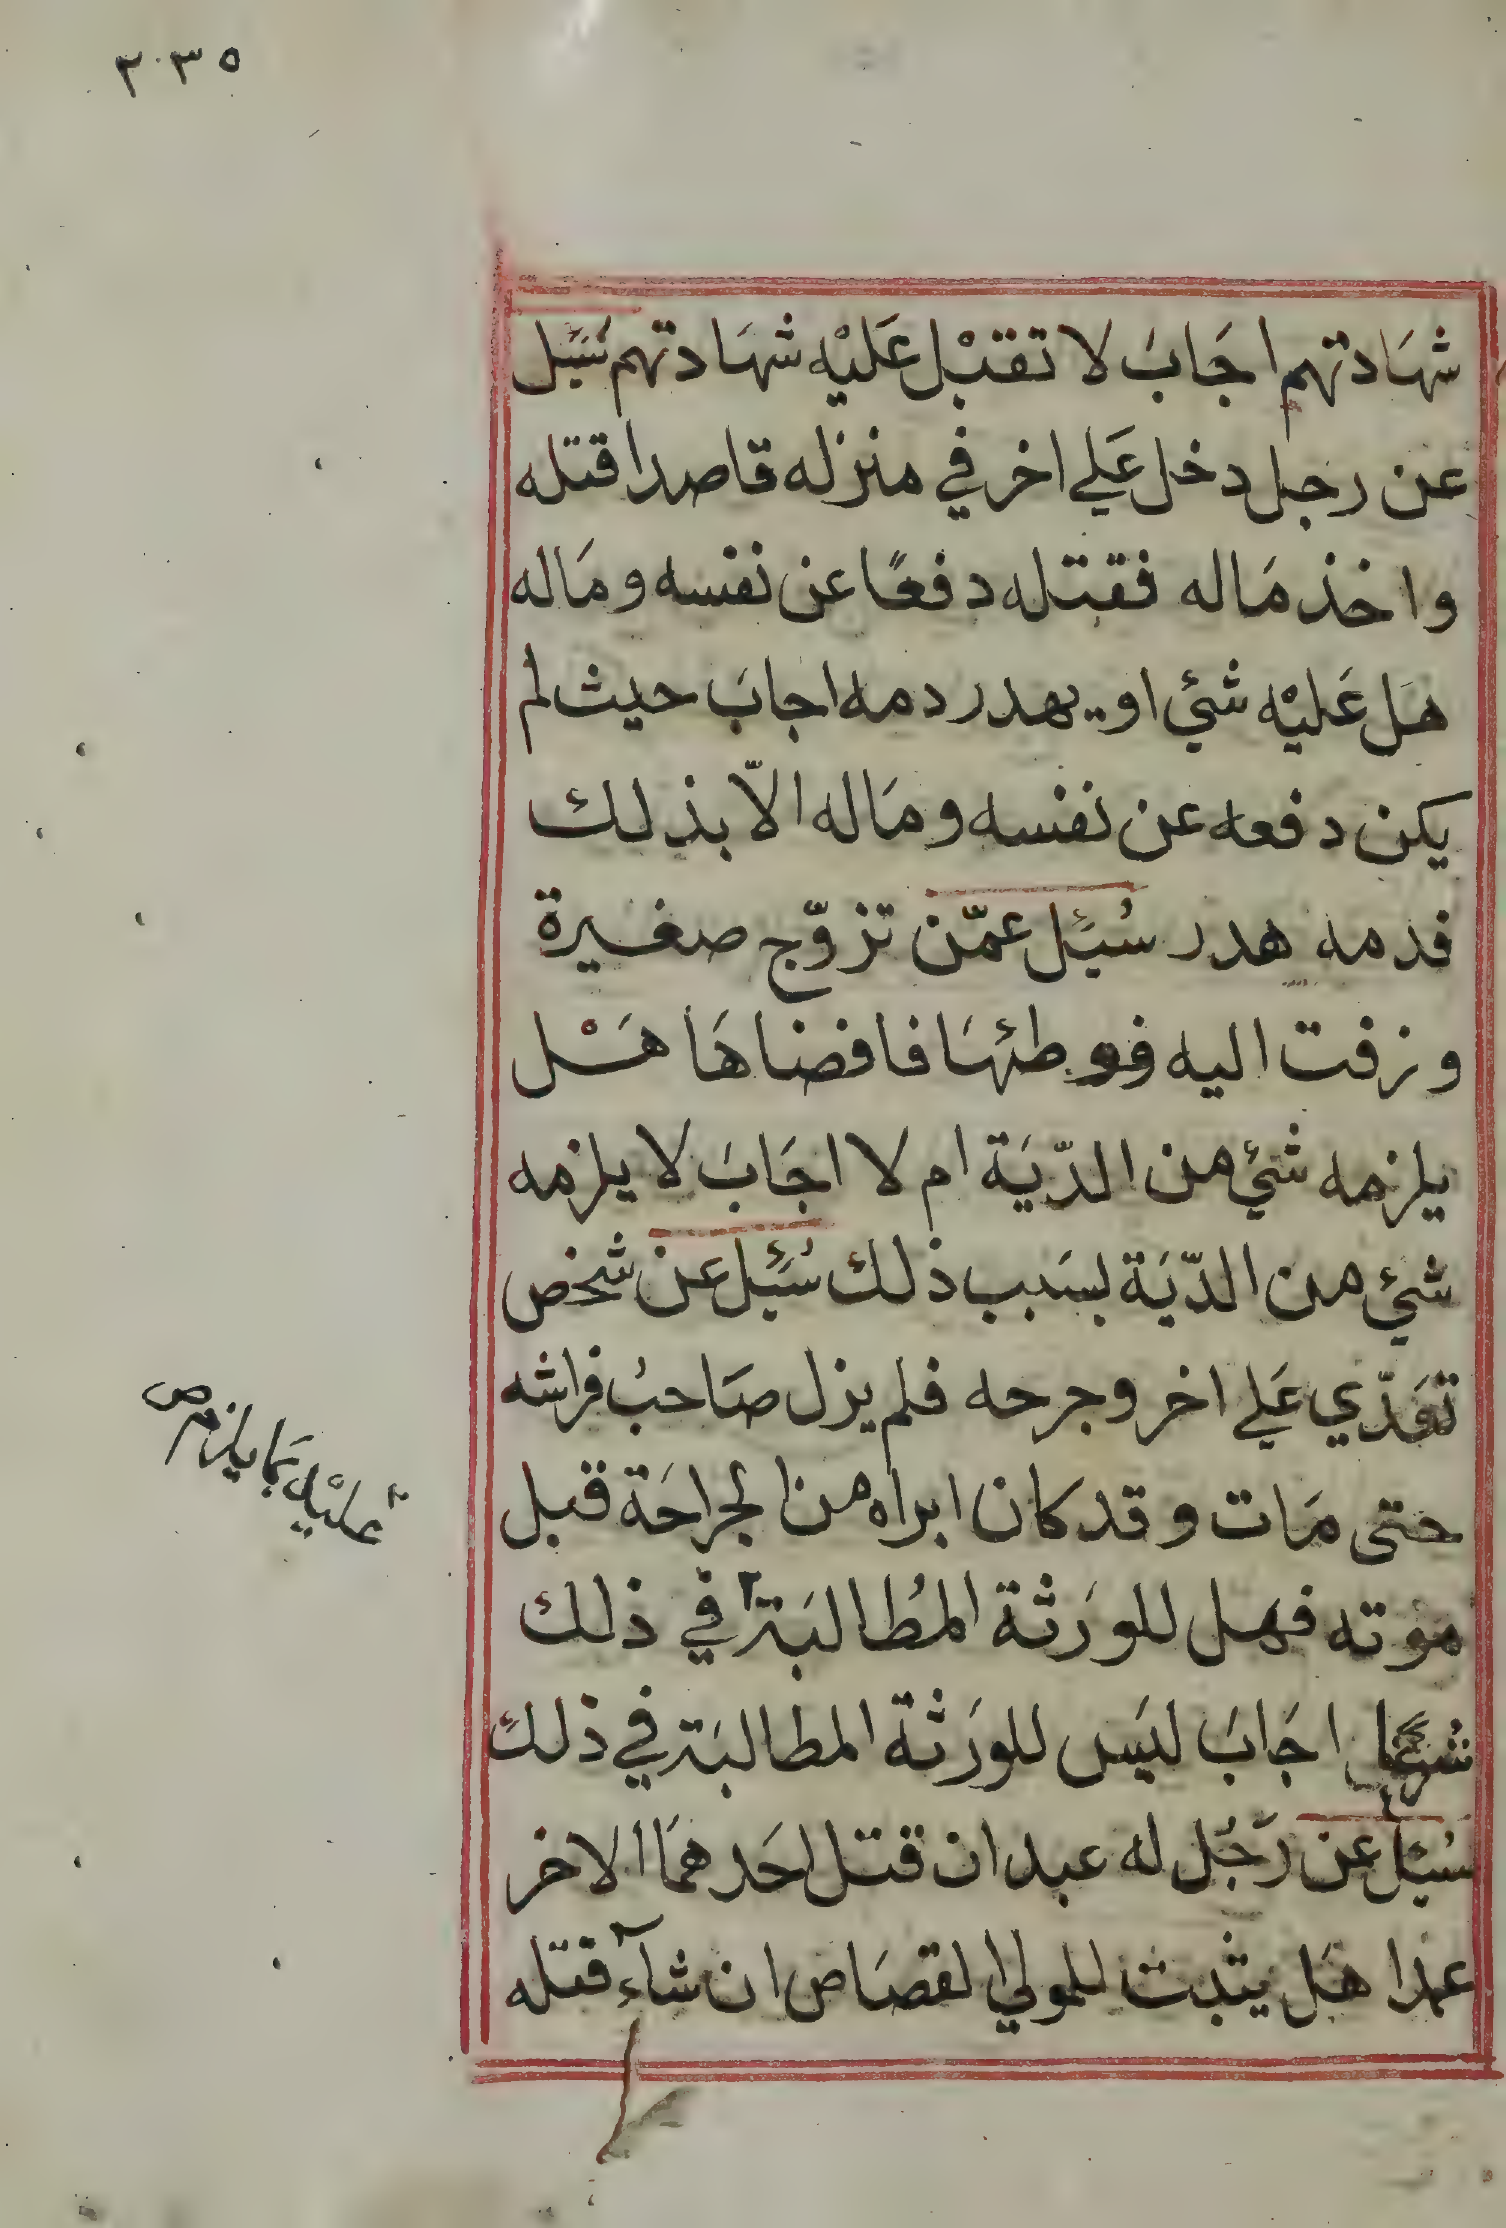 ٢٣٥
شهَادتهم اجَابَ لا تقبْل عَليْه شهَادتهم سُئِل
عن رجل دخل عَلي اخر في منزله قاصدا قتله
واخذ مَاله فقتله دفعًا عن نفسه ومَاله
هَل عَليْه شئ او يهدر دمه اجابَ حيث لم
يكن دفعه عن نفسه ومَاله الاّ بذلك
فدمه هدر سُئِل عمّن تزوّج صغيرة
وزفت اليه فوطئهَا فافضاهَا هَـْل
يلزمه شئ من الدّيَة ام لا اجَابَ لا يلزمه
شئ من الدّيَة بسَبب ذلك سُئِل عن شخص
تعَدّي عَلي اخر وجرحه فلم يزل صَاحبُ فراشه
حتى مَات وقد كان ابراه من الجراحَة قبل
موته فهل للورَثة المُطالبَة٢ في ذلك
عليْه بمَا يلزمه ص
شرعًا اجَابَ ليَس للورَثة المطالبَة في ذلك
سُئِل عن رَجُل له عبدان قتل احَدهمَا الاخر
عمدا هَل يثبت للمولي القصَاص ان شآء قتله